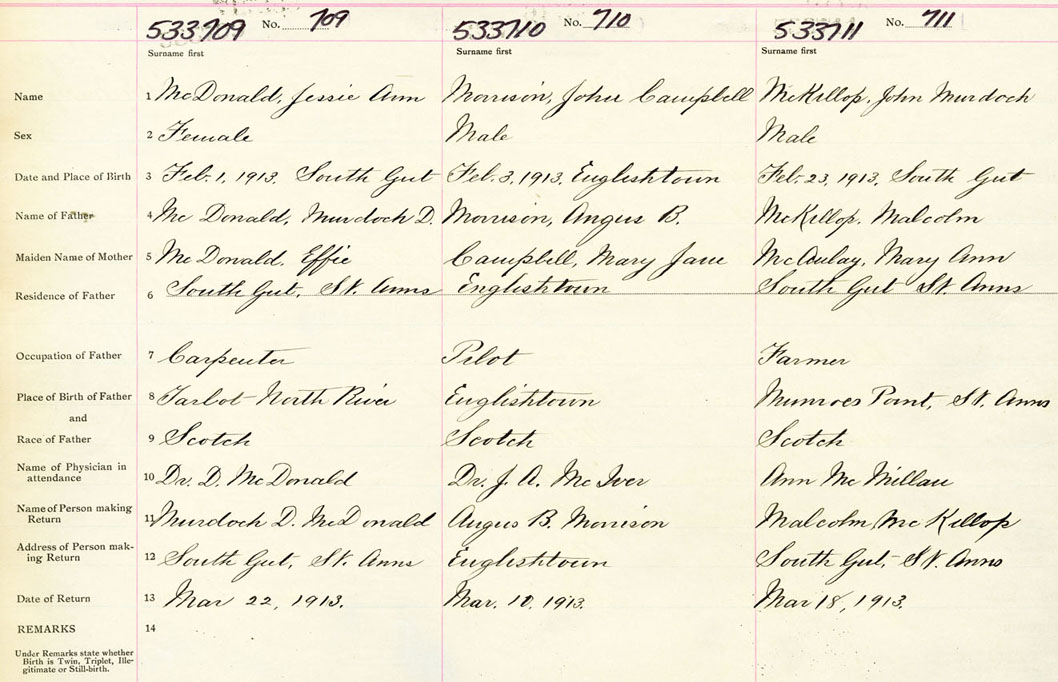 533709 No. 709 533710 No. 710 533711 No. 711
Surname first Surname first Surname first
Name 1 McDonald, Jessie Ann Morrison, John Campbell McKillop, John Murdoch
Sex 2 Female Male Male
Date and Place of Birth 3 Feb. 1, 1913. South Gut Feb. 3, 1913, Englishtown Feb. 23, 1913, South Gut
Name of Father 4 Mc Donald, Murdoch D. Morrison, Angus B. McKillop, Malcolm
Maiden Name of Mother 5 Mc Donald, Effie Campbell, Mary Jane McAulay, Mary Ann
Residence of Father 6 South Gut, St. Anns Englishtown South Gut St. Anns
Occupation of Father 7 Carpenter Pilot Farmer
Place of Birth of Father 8 Tarbot North River Englishtown Munroes Point, St. Anns
and
Race of Father 9 Scotch Scotch Scotch
Name of Physician in
attendance 10 Dr. D. McDonald Dr. J. A. McIver Ann McMillan
Name of Person making
Return 11 Murdoch D. McDonald Angus B. Morrison Malcolm McKillop
Address of Person mak-
ing Return 12 South Gut, St. Anns Englishtown South Gut, St. Anns
Date of Return 13 Mar 22, 1913. Mar. 10, 1913. Mar 18, 1913.
REMARKS 14
Under Remarks state whether
Birth is Twin, Triplet, Ille-
gitimate or Still-birth.